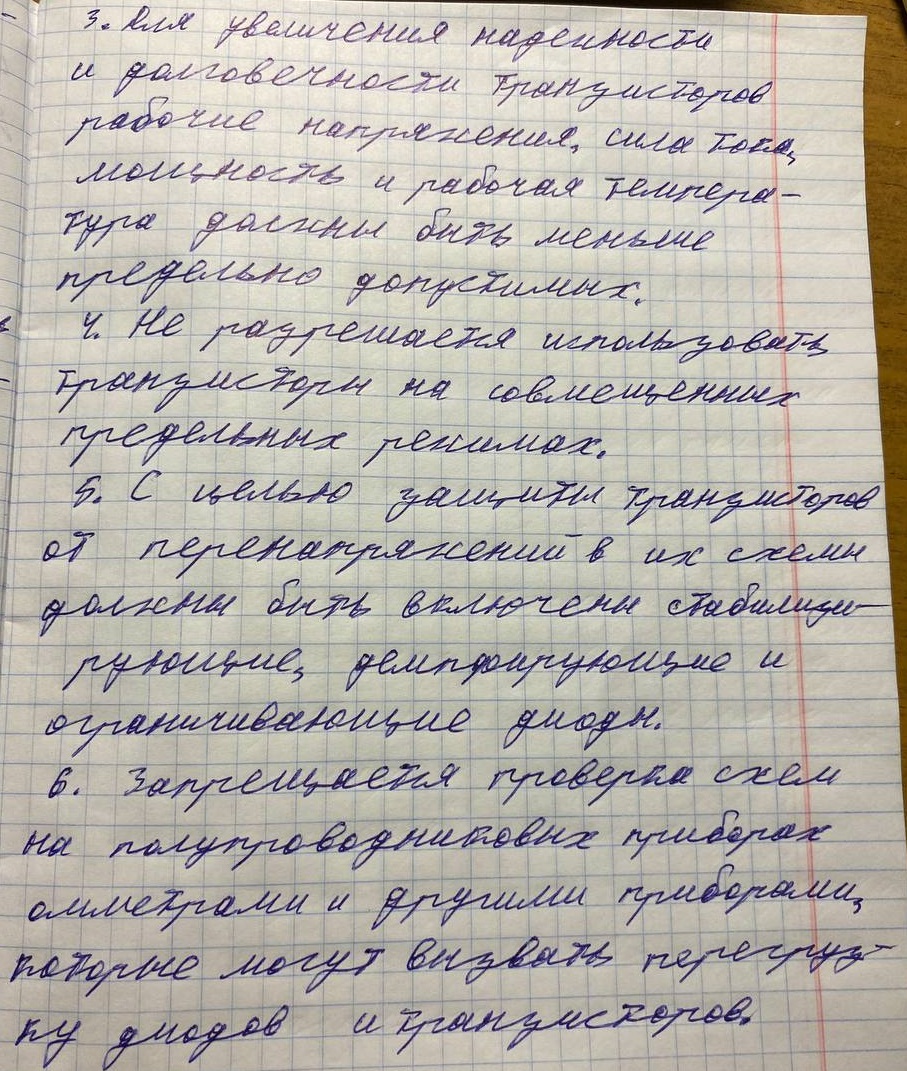 3. Для увеличения надежности
и долговечности транзисторов
рабочие напряжения, сила тока,
мощность и рабочая темпера-
тура должны быть меньше
предельно допустимых.
4. Не разрешается использовать
транзисторы на совмещенных
предельных режимах.
5. С целью защиты транзисторов
от перенапряжений в их схемы
должны быть включены стабилизи-
рующие, демпфирующие и
ограничивающие диоды.
6. Запрещается проверка схем
на полупроводниковых приборах
омметрами и другими приборами,
которые могут вызвать перегруз-
ку диодов и транзисторов.